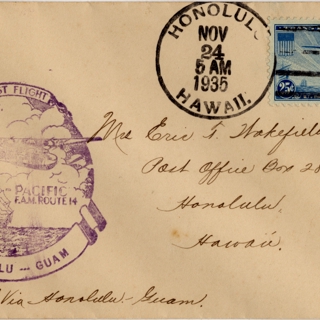 HONOLULU
NOV
24
5 AM
1935
HAWAII.
25¢
ST FLIGHT
PACIFIC
F.A.M. ROUTE 14
LU --- GUAM
Eric T. Wakefield
Post Office Box 20
Honolulu.
Hawaii.
Via - Honolulu - Guam.